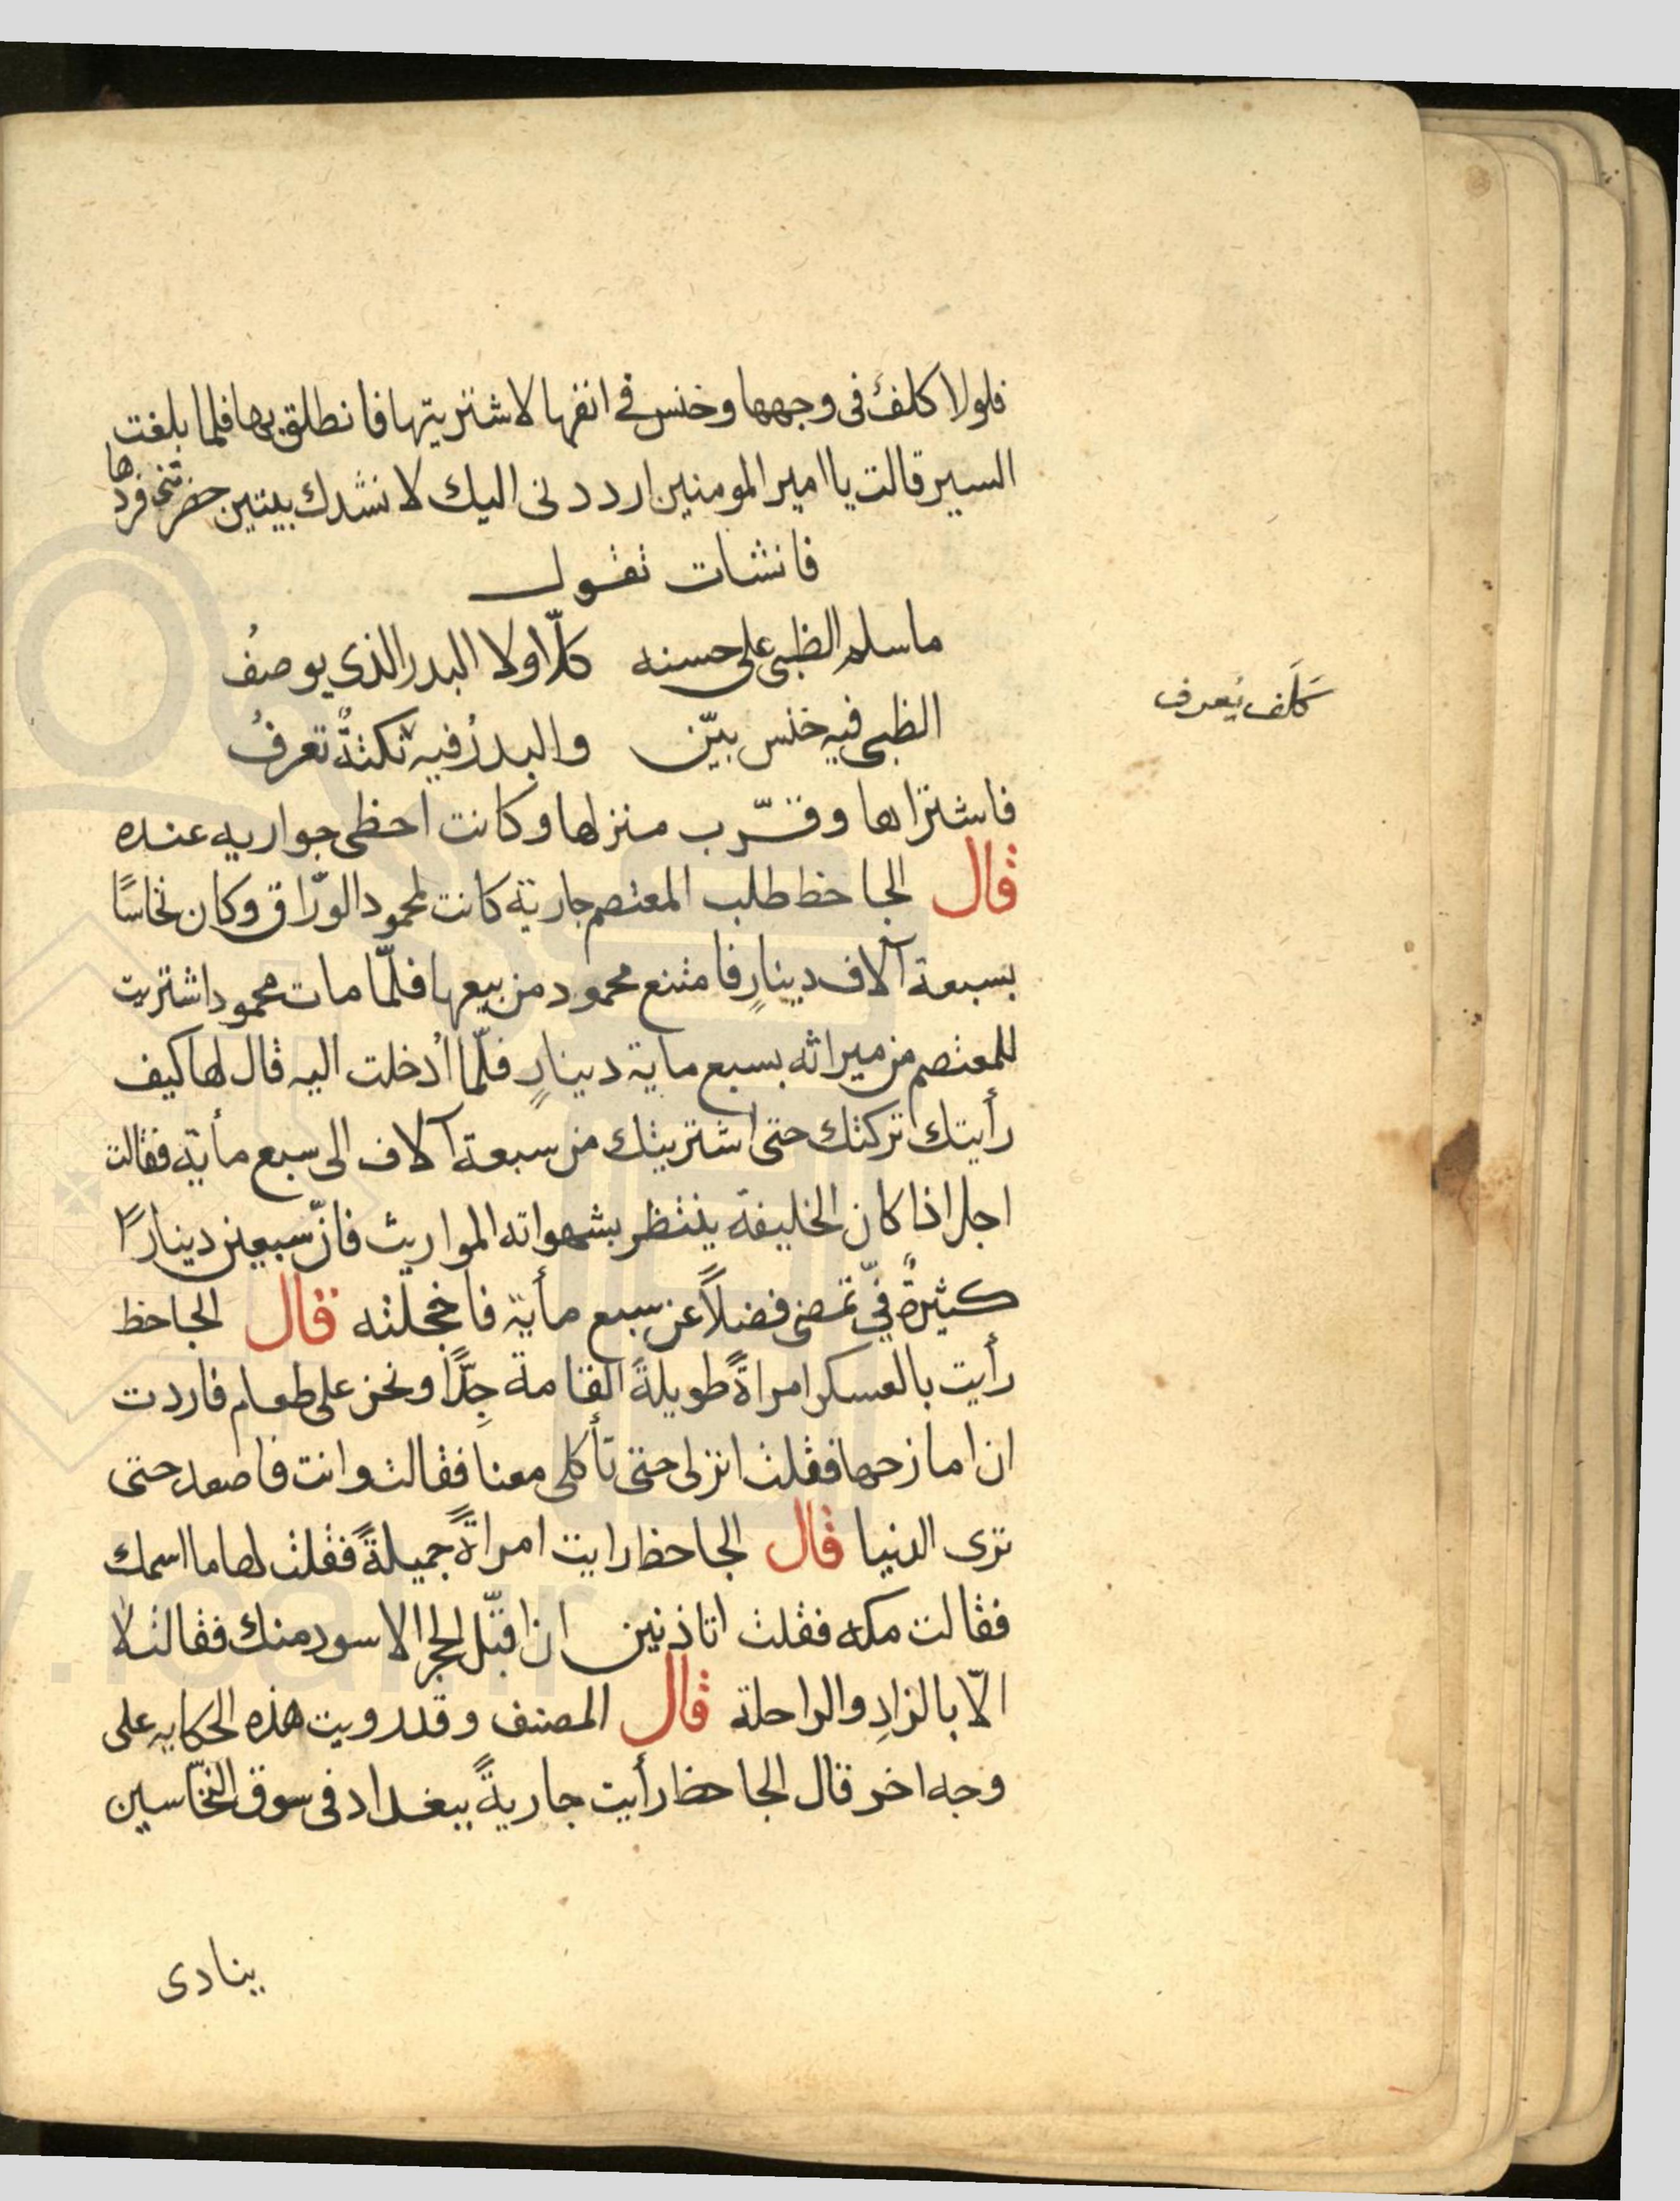 فلولا كلفٌ فى وجهها وخنس فى انفها لاشتريتها فانطلق بها فلما بلغت
الستر قالت يا امير المومنين ارددنى اليك لانشدك بيتين حضرتنى فردها
فانشات تقول
ما سلم الظبى على حسنه كلّا ولا البدر الذى يوصفُ
الظبى فيه خنس بيّن والبدرُ فيه نكتةٌ تعرفُ
كَلَف يُعرف
فاشتراها وقرّب منزلها وكانت احظى جواريه عنده
قال الجاحظ طلب المعتصم جارية كانت لمحمود الورّاق وكان نخّاسًا
بسبعة آلاف دينارٍ فامتنع محمود من بيعها فلمّا مات محمود اشتريت
للمعتصم من ميراثه بسبع ماية دينارٍ فلمّا اُدخلت اليه قال لها كيف
رأيتك تركتك حتى اشتريتك من سبعة آلاف الى سبع مأية فقالت
اجل اذا كان الخليفة ينتظر بشهواته المواريث فانّ سبعين دينارًا
كثيرةٌ فى ثمنى فضلاً عن سبع مأية فاخجلته قال الجاحظ
رأيت بالعسكر امراةً طويلةً القامة جِدًّا ونحن على طعام فاردت
ان امازحها فقلت انزلى حتى تأكلى معنا فقالت وانت فاصعد حتى
ترى الدنيا قال الجاحظ رايت امراةً جميلةً فقلت لها ما اسمك
فقالت مكه فقلت اتاذنين ان اقبّل الحجر الاسود منك فقالت لا
الّا بالزادِ والراحلة قال المصنف وقد رويت هذه الحكايه على
وجه اخر قال الجاحظ رأيت جاريةً ببغداد فى سوق النخّاسين
ينادى